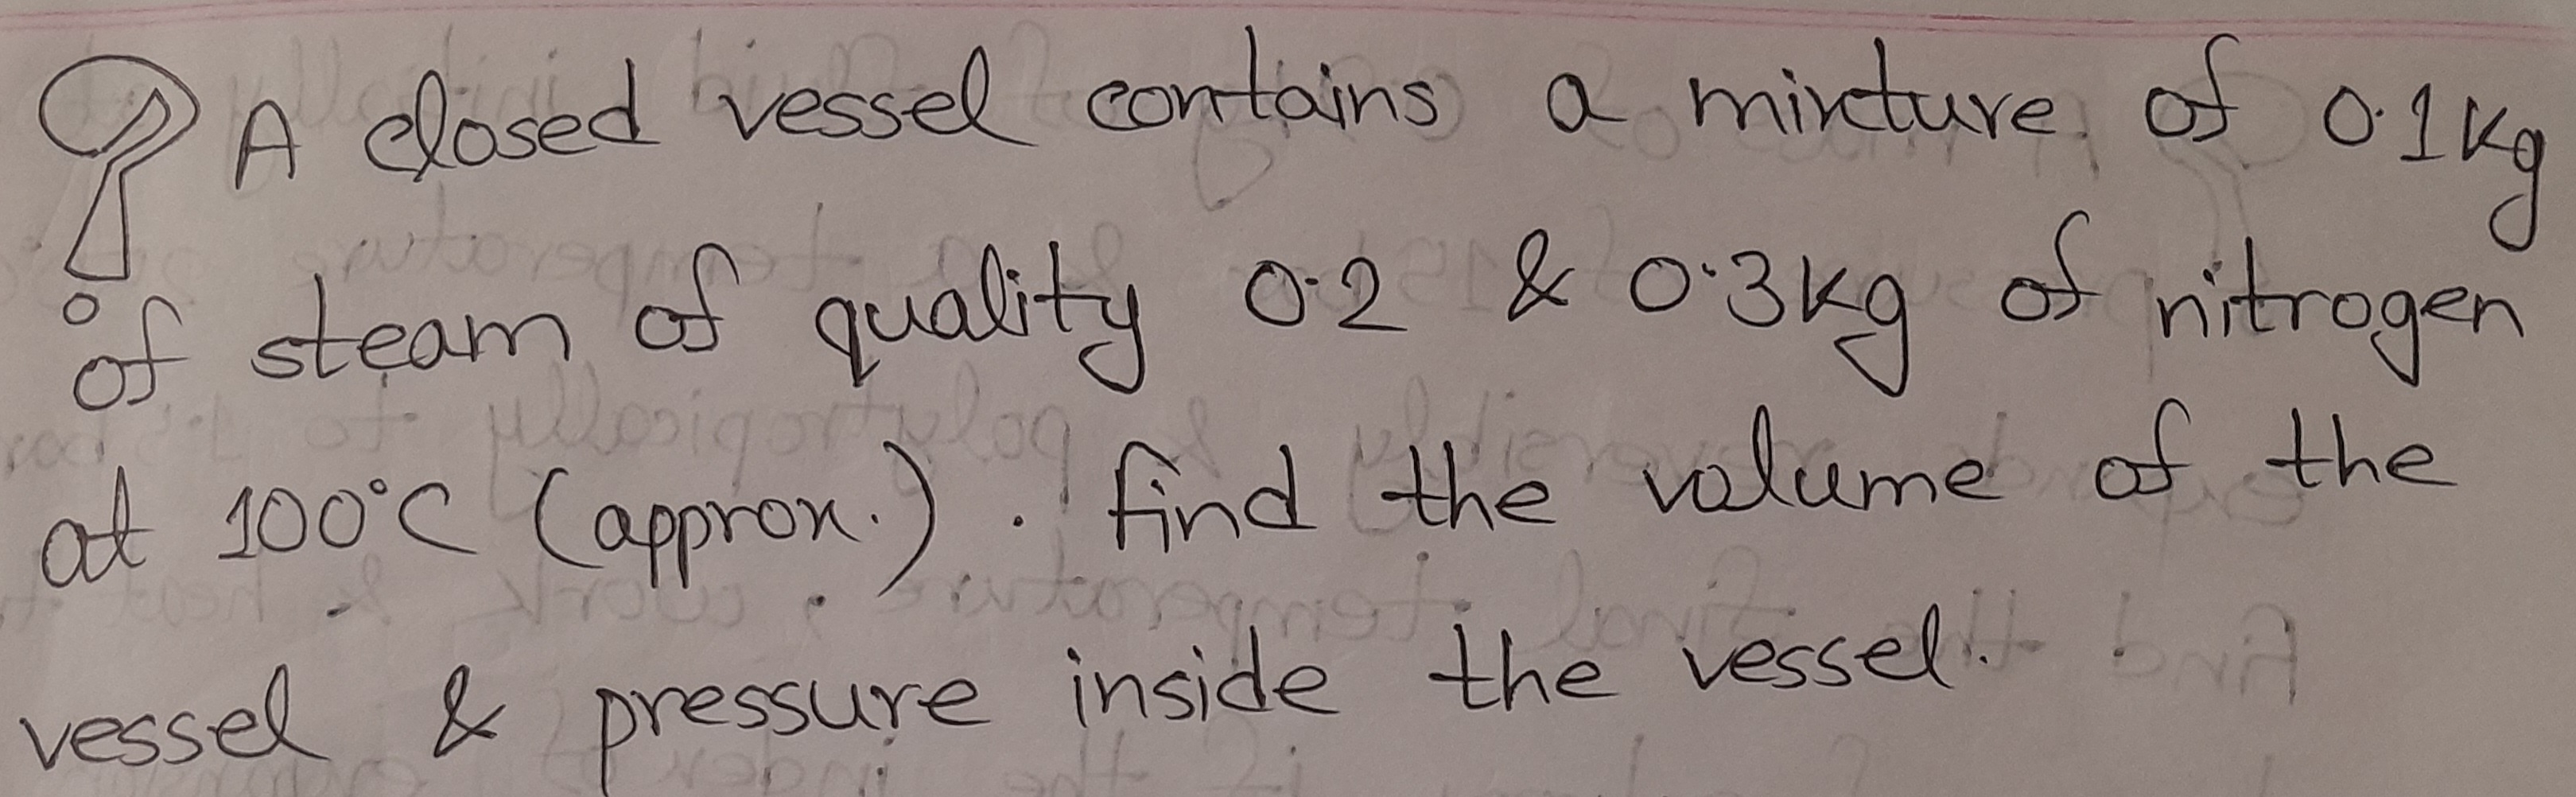 A closed vessel contains a mixture of 0.1 Kg
of steam of quality 0.2 & 0.3 Kg of nitrogen
at 100°C (approx.). find the volume of the
vessel & pressure inside the vessel.